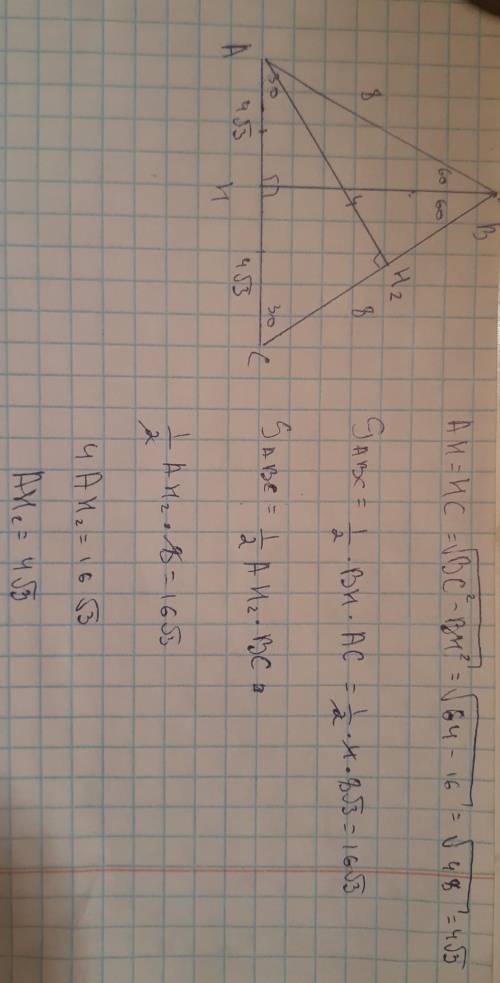 B
60 60
8
4
H₂
8
A
30
4√3
H
4√3
30
C
AH = HC = √BC² - BH² = √64 - 16 = √48 = 4√3
S ABC = 1/2 · BH · AC = 1/2 · 4 · 8√3 = 16√3
S ABC = 1/2 AH₂ · BC =
1/2 AH₂ · 8 = 16√3
4 AH₂ = 16√3
AH₂ = 4√3